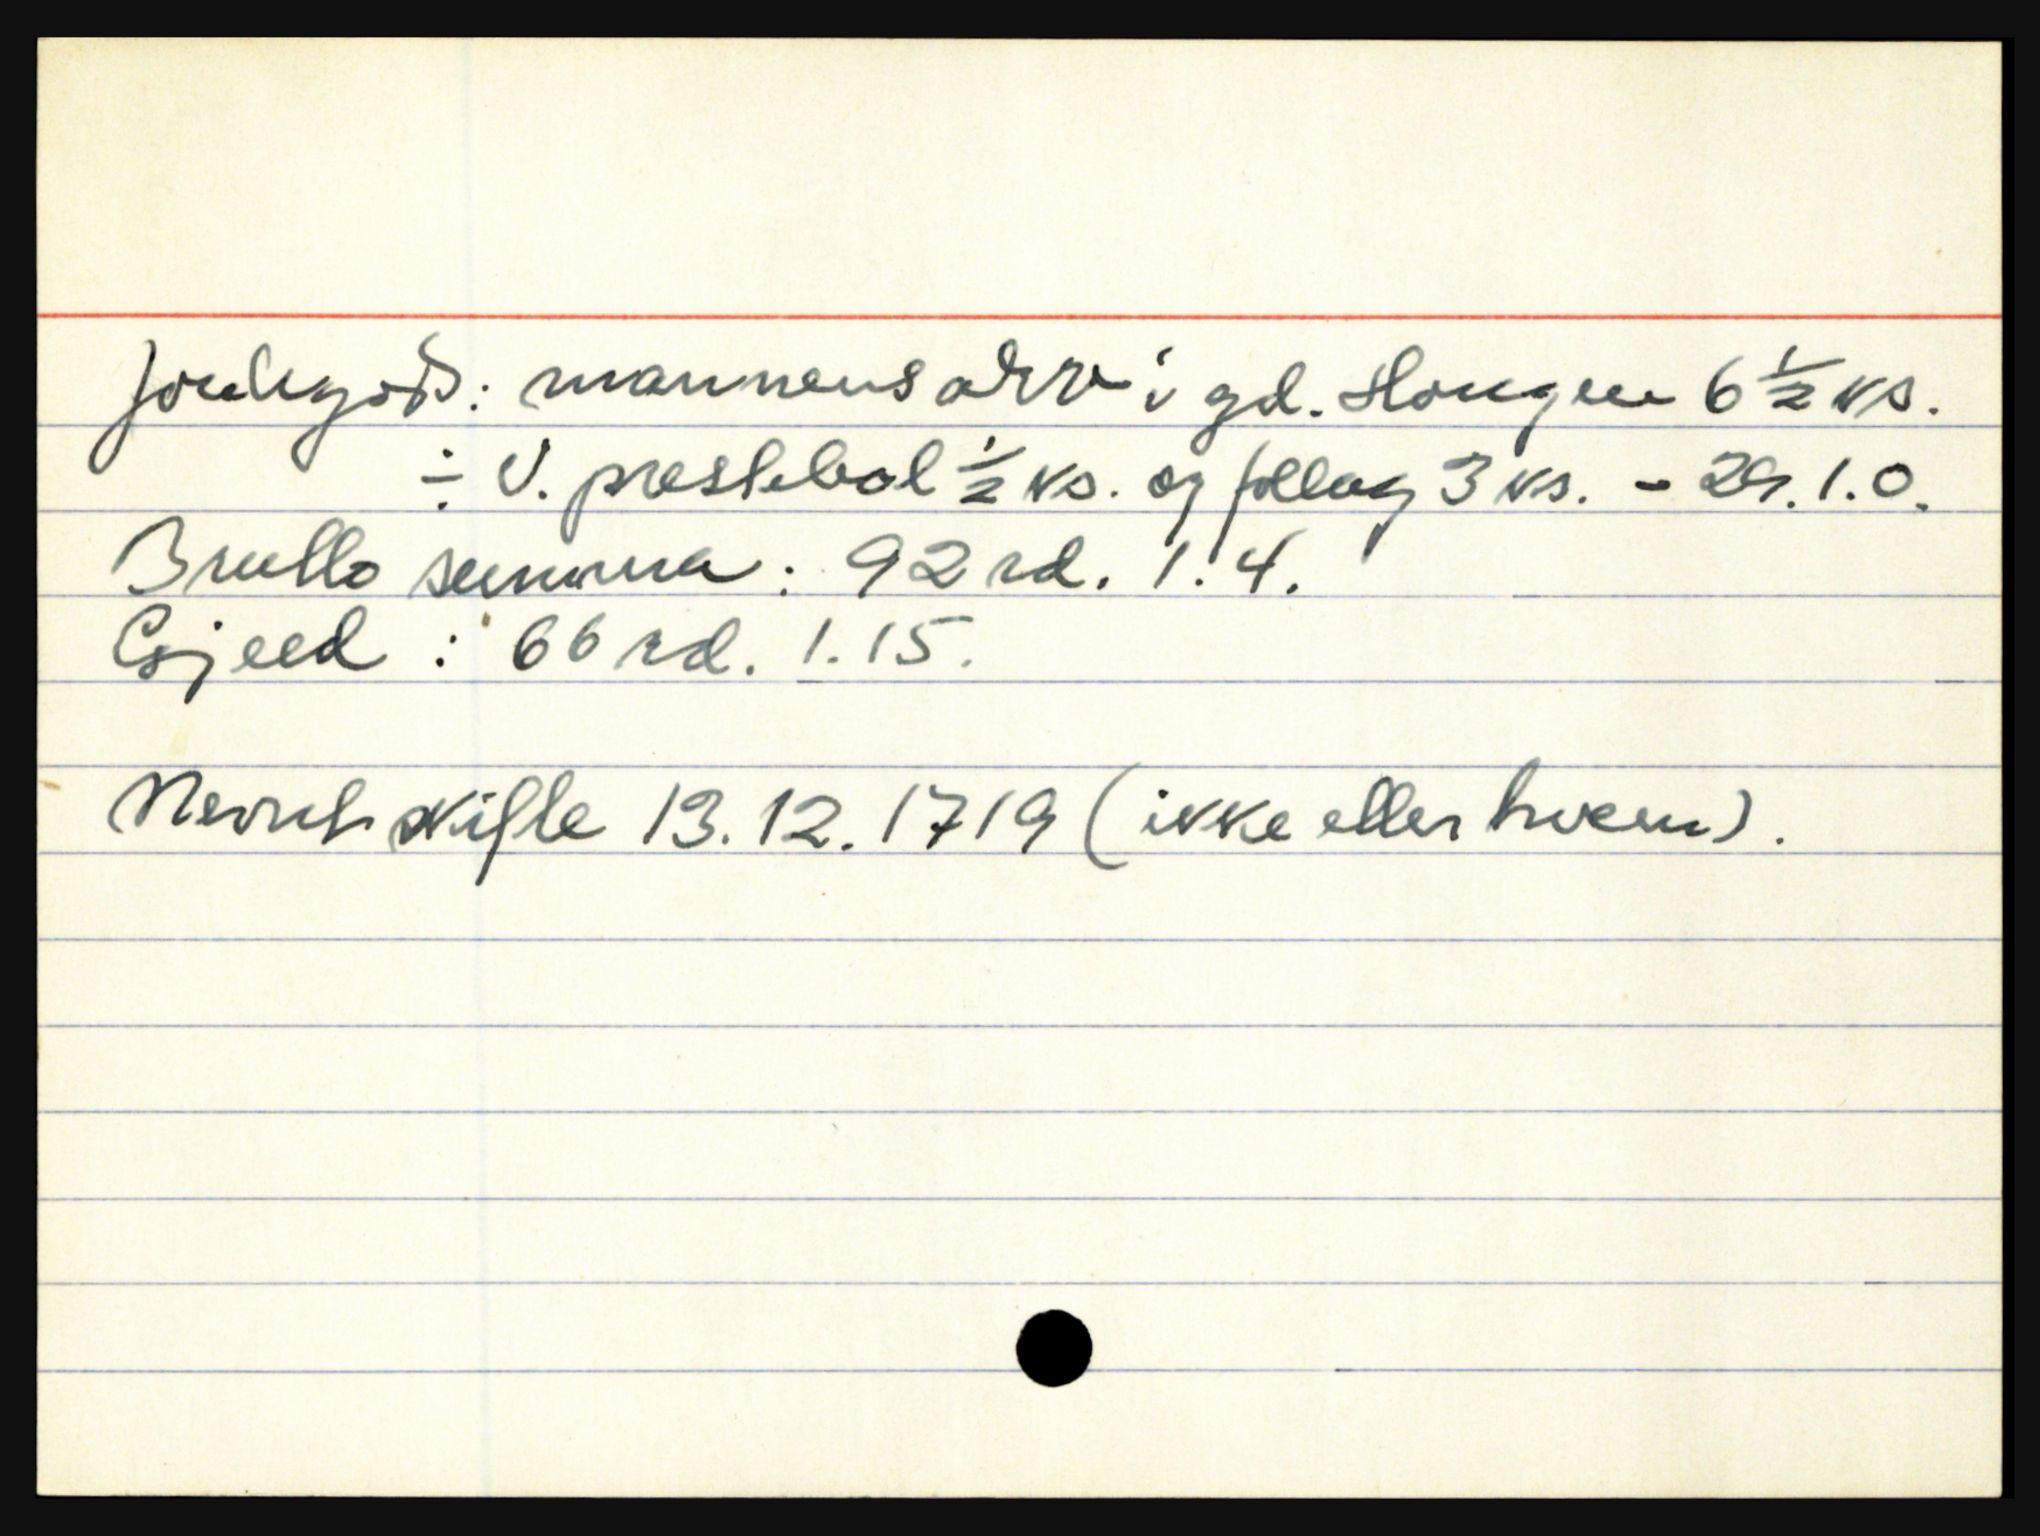 Jordegods: mannens arv i gd. Haugen 6 1/2 ks.
÷ V. prestebol 1/2 ks. og fellag 3 ks. - 29.1.0.
Brutto summa: 92 rd. 1.4.
Gjeld : 66 rd. 1.15.
Nevnt skifte 13.12.1719 (ikke etter hvem).